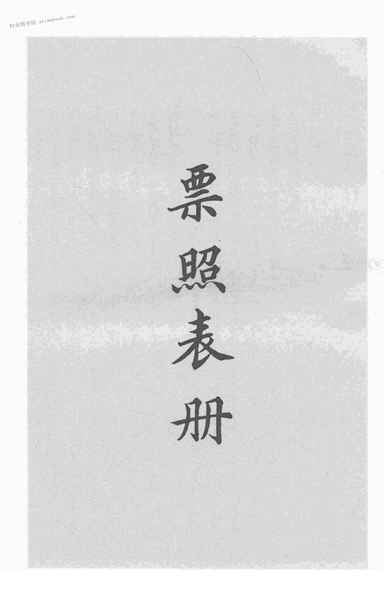 票照表册